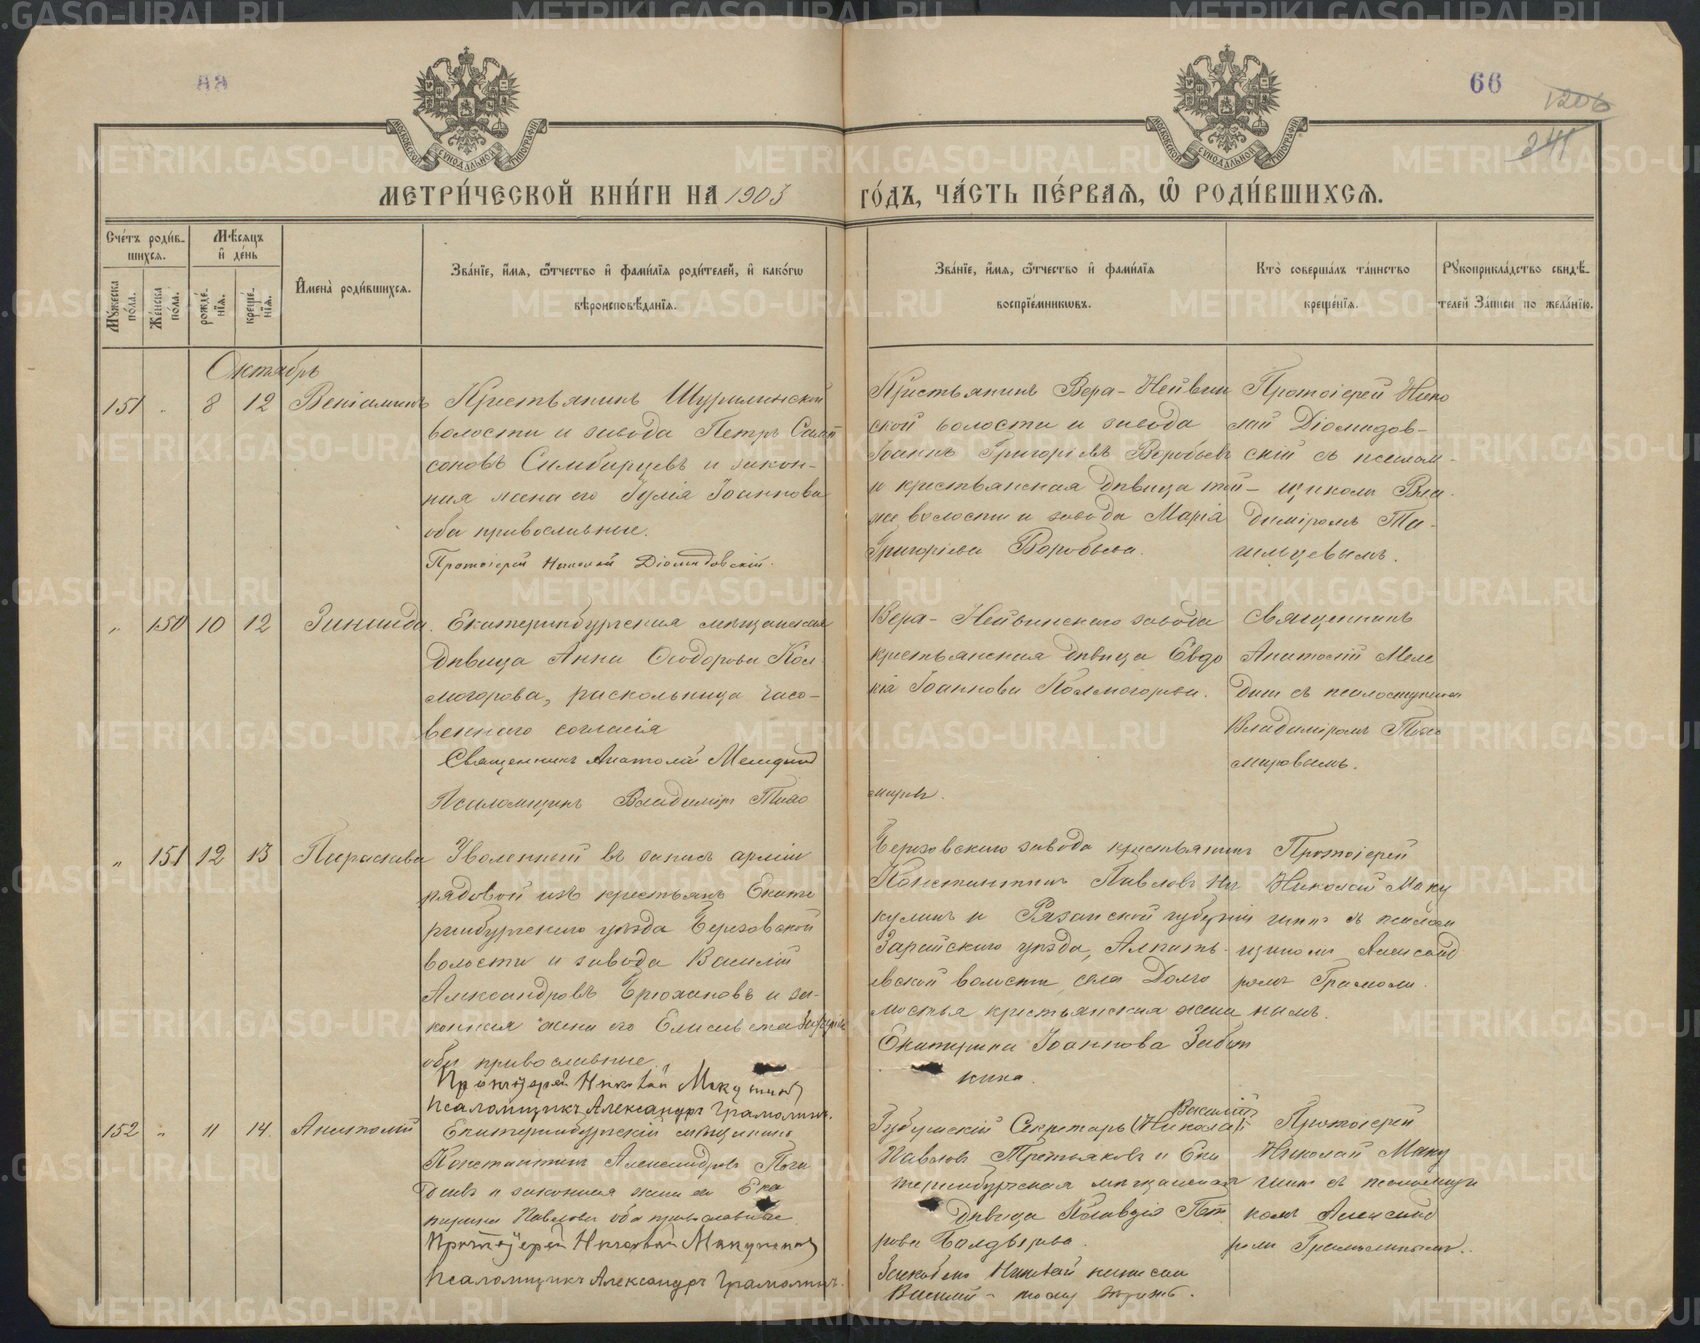 66
1206
241
МЕТРИ́ЧЕСКОЙ КНИ́ГИ НА 1903 ГО́ДЪ, ЧА́СТЬ ПЕ́РВАЯ, Ѡ РОДИ́ВШИХСЯ.
Сче́тъ роди́в-
шихся.
Му́жеска по́ла.
Же́нска по́ла.
Мѣ́сяцъ
и де́нь
рожде́-
нія.
креще́-
нія.
Имена̀ роди́вшихся.
Зва́ніе, и́мя, ѻ́тчество и фами́лія роди́телей, и како́гѡ
вѣроисповѣ́данія.
Зва́ніе, и́мя, ѻ́тчество и фами́лія
воспріе́мникѡвъ.
Кто̀ соверша́лъ та́инство
креще́нія.
Рꙋкоприкла́дство свидѣ́-
телей за́писи по жела́нію.
Октябрь
151 " 8 12 Веніаминъ
Крестьянинъ Шуралинской
волости и завода Петръ Самп
соновъ Симбирцевъ и закон-
ная жена его Іулія Іоаннова
оба православные.
Протоіерей Николай Діомидовскій.
Крестьянинъ Верх-Нейвин
ской волости и завода
Іоаннъ Григорьевъ Воробьевъ
и крестьянская дѣвица той-
же волости и завода Марія
Григоріева Воробьева.
Протоіерей Нико
лай Діомидов-
скій съ псалом-
щикомъ Вла-
диміромъ Ти-
" 150 10 12 Зинаида
Екатеринбургская мѣщанская
дѣвица Анна Ѳеодорова Кол
могорова, раскольница часо-
веннаго согласія
Священникъ Анатолій
Псаломщикъ Владиміръ Тихо
міровъ.
Верх-Нейвинскаго завода
крестьянская дѣвица Евдо
кія Іоаннова Колмогорова.
Священникъ
Анатолій
Владиміромъ Тихо
міровымъ.
" 151 12 13 Параскева
Уволенный въ запасъ арміи
рядовой изъ крестьянъ Екате
ринбургскаго уѣзда Березовской
волости и завода Василій
Александровъ Брюхановъ и за-
конная жена его Елисавета
оба православные.
Протоіерей Николай Макушинъ
Псаломщикъ Александръ Грамолинъ.
Березовскаго завода крестьянинъ
Константинъ Павловъ
кулинъ и Рязанской губерніи
Зарайскаго уѣзда,
евской волости, села Долго
мостья крестьянская жена
Екатерина Іоаннова
кина.
Протоіерей
Николай Маку
шинъ съ псалом
щикомъ Александ
ромъ Грамоли
нымъ.
152 " 11 14 Анатолій
Екатеринбургскій мѣщанинъ
Константинъ Александровъ
и законная жена его Ека
терина Павлова оба православные.
Протоіерей Николай Макушинъ
Псаломщикъ Александръ Грамолинъ.
Василій
Губернскій Секретарь (Николай)
Павловъ Третьяковъ и Ека
теринбургская мѣщанская
дѣвица Клавдія Пет
рова Болдырева.
Протоіерей
Николай Маку
шинъ съ псаломщи
комъ Александ
ромъ Грамолинымъ.